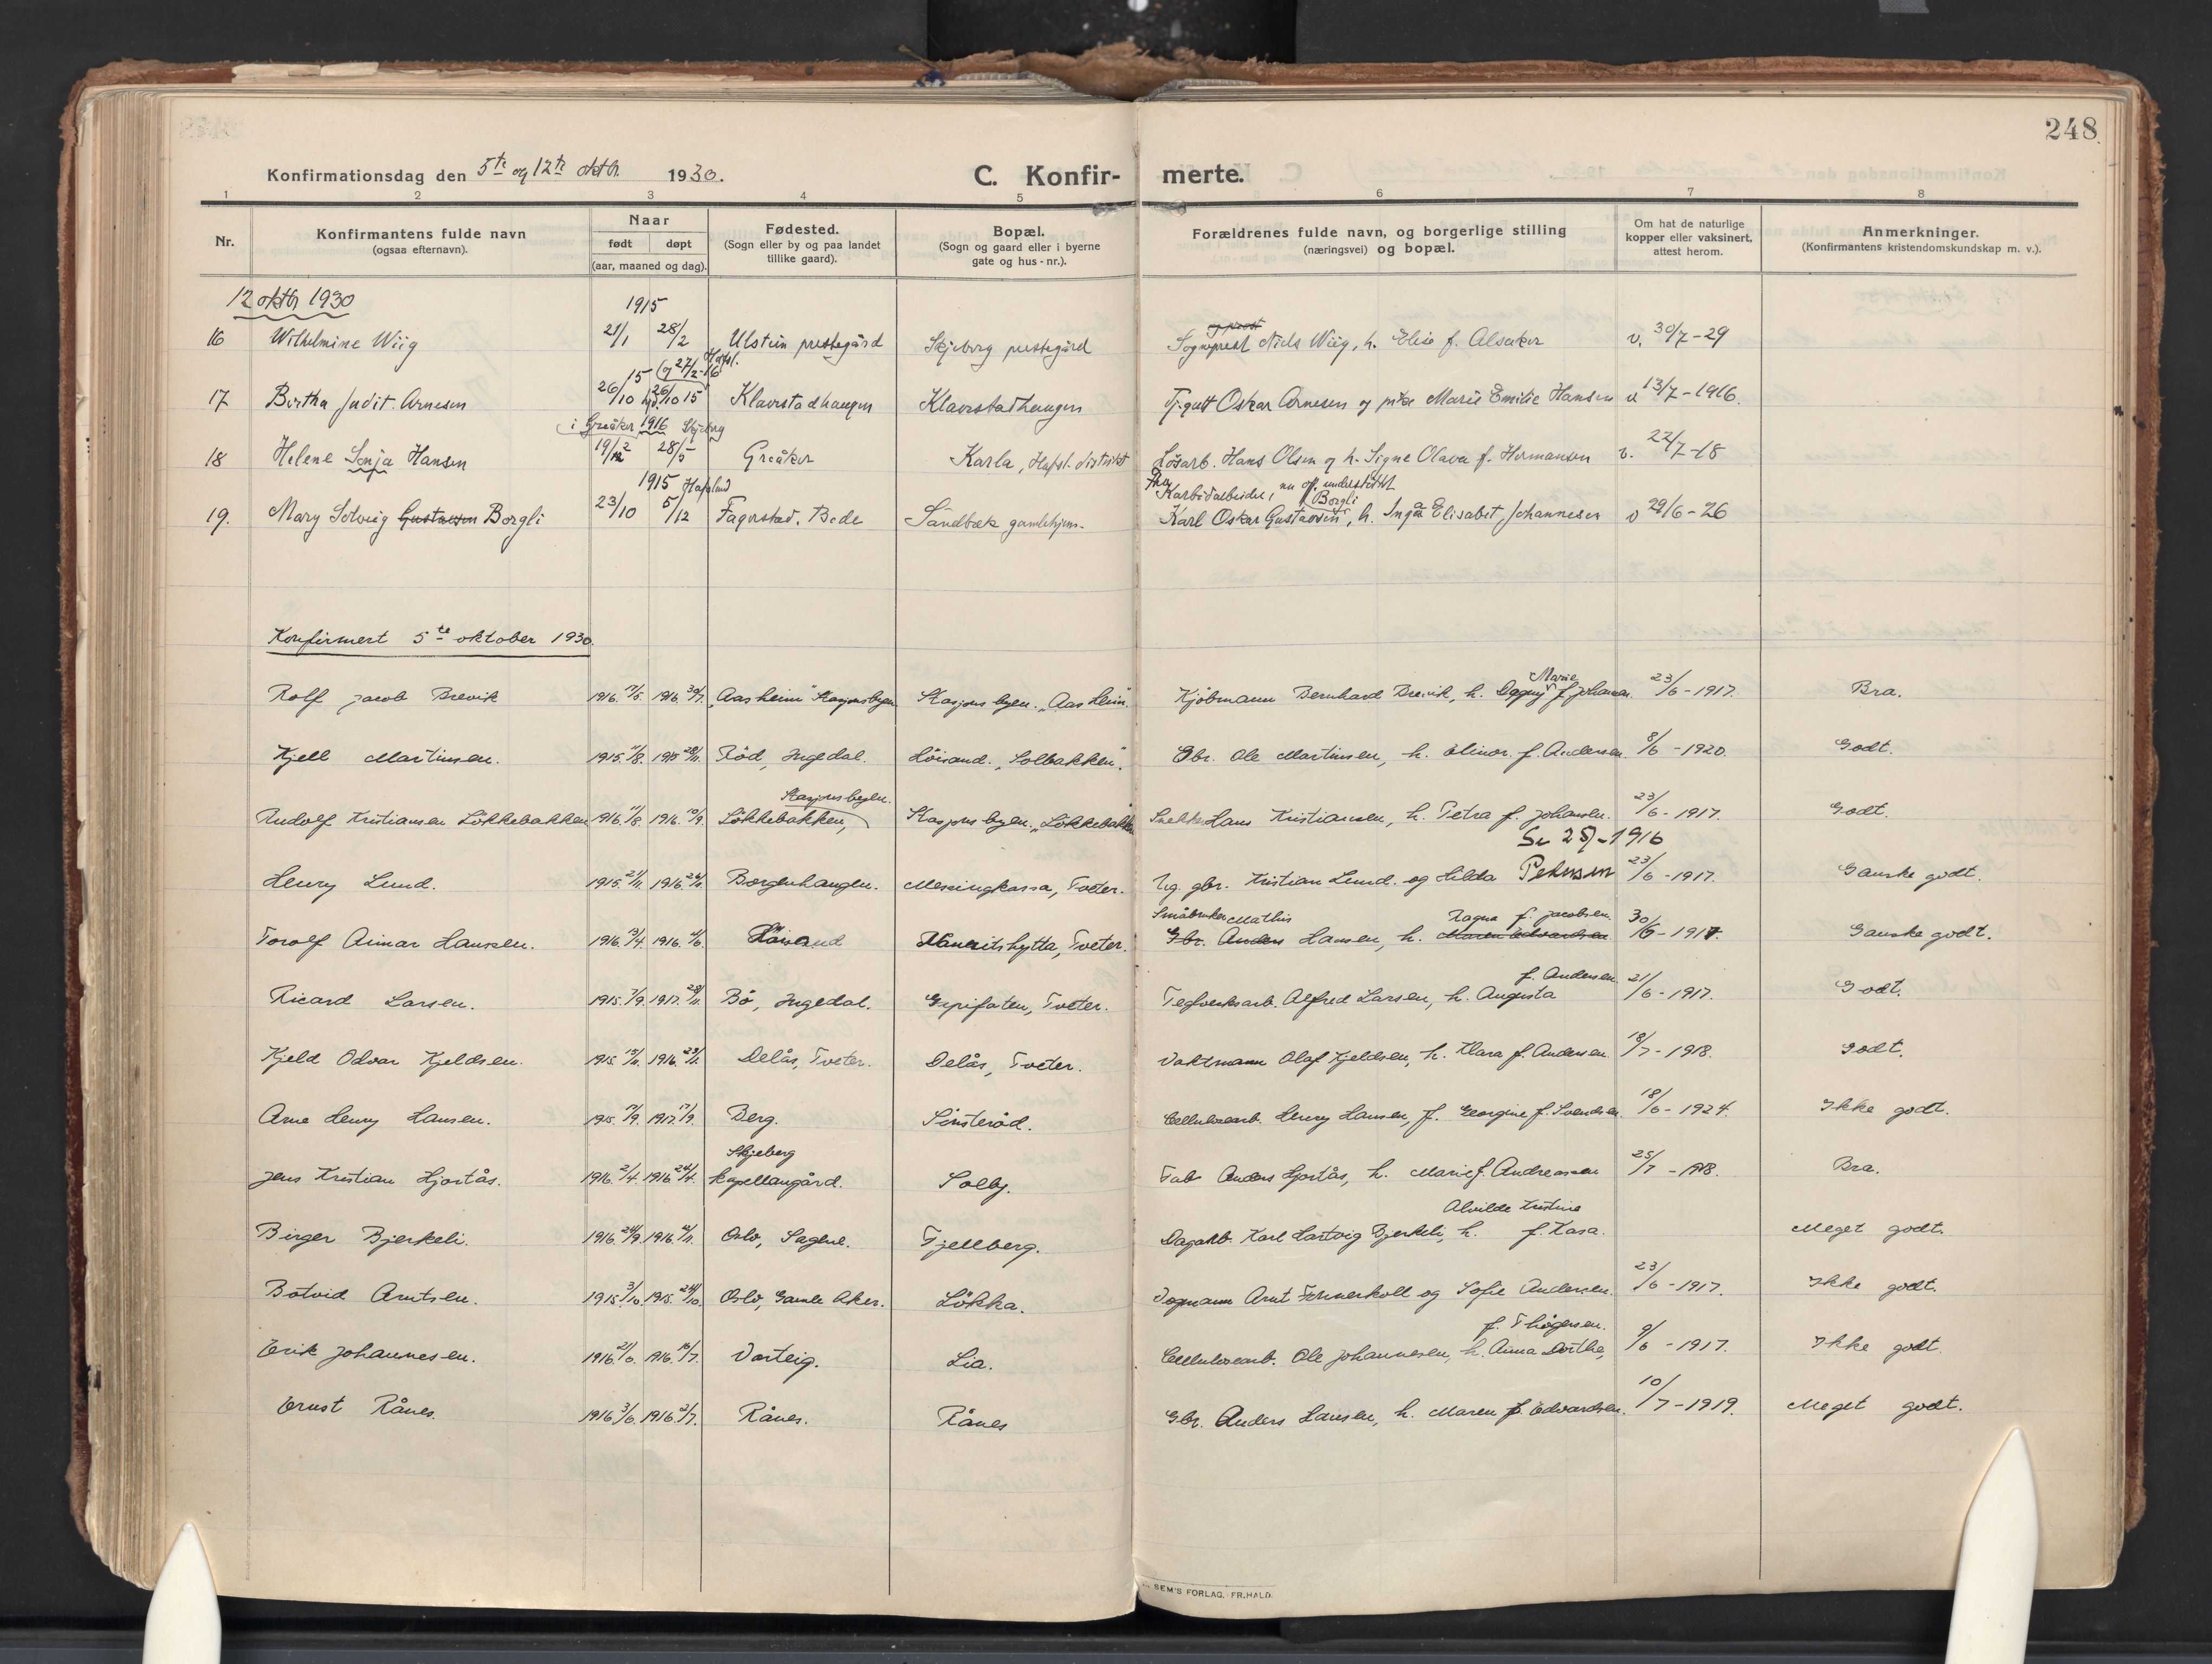 248
Konfirmationsdag den 5te og 12te oktbr. 1930. C. Konfir- merte.
1 2 3 4 5 6 7 8
Nr. Konfirmantens fulde navn (ogsaa efternavn). Naar født døpt (aar, maaned og dag). Fødested. (Sogn eller by og paa landet tillike gaard). Bopæl. (Sogn og gaard eller i byerne gate og hus-nr.). Forældrenes fulde navn, og borgerlige stilling (næringsvei) og bopæl. Om hat de naturlige kopper eller vaksinert, attest herom. Anmerkninger. (Konfirmantens kristendomskundskap m. v.).
12 oktbr 1930 1915
og prost
16 Wilhelmine Wiig 21/1 28/2 Ulstein prestegård Skjeberg prestegård Sogneprest Niels Wiig, h. Elise f. Alsaker v. 30/7-29
15 og 27/2-16 Hafsl.
17 Bertha Judit Arnesen 26/10 26/10 15 Klaverstadhaugen Klaverstadhaugen Tj.gutt Oskar Arnesen og pike Marie Emilie Hansen v 13/7-1916.
i Greåker 1916 Skjeberg
18 Helene Sonja Hansen 19/2 28/5 Greåker Karla, Hafsl. distrikt Løsarb. Hans Olsen og h. Signe Olava f. Hermansen v. 22/7-18
1915 Hafslund Karbidarbeider, nu off. understøttet
Borgli
19. Mary Solveig Gustavsen Borgli 23/10 5/12 Fagerstad, Bede Sandbæk gamlehjem. Karl Oskar Gustavsen, h. Inga Elisabet Johannesen v 29/6-26
Konfirmert 5te oktober 1930.
Marie
Rolf Jacob Brevik 1916. 17/5. 1916. 30/7. "Aasheim" Stasjonsbyen Stasjonsbyen. "Aasheim". Kjøbmann Bernhard Brevik, h. Dagny f. Johansen. 23/6-1917. Bra.
Kjell Martinsen. 1915. 11/8. 1915 28/11. Röd, Ingedal. Höisand. "Solbakken". Gbr. Ole Martinsen, h. Elinor f. Andersen. 8/6-1920. Godt.
Stasjonsbyen.
Rudolf Kristiansen Lökkebakken 1916. 11/8. 1916. 10/9. Lökkebakken, Stasjonsbyen. "Lökkebakken Snekker Hans Kristiansen, h. Petra f. Johansen. 23/6-1917. Godt.
Henry Lund. 1915. 21/11. 1916. Borgenhaugen. Messingkassa, Tveter. Ug. gbr. Kristian Lund og Hilda Petersen 23/6-1917. Ganske godt.
Småbruker Mathis Ragna f. Jacobsen.
Torolf Aimar Hansen. 1916. 13/4. 1916. Höisand Mauritshytta, Tveter. Gbr. Anders Hansen, h. Maren Edvardsen 30/6-1917. Ganske godt.
f. Andersen.
Ricard Larsen. 1915. 7/9. 1917. Bö, Ingedal. Gripifaten, Tveter. Teglverksarb. Alfred Larsen, h. Augusta 21/6-1917. Godt.
Kjeld Odvar Kjeldsen. 1915. 15/11. 1916. Delås, Tveter. Delås, Tveter. Vaktmann Olaf Kjeldsen, h. Klara f. Andersen. 18/7-1918. Godt.
Arne Henry Hansen. 1915. 1917. Berg. Sinsteröd. Cellulosearb. Henry Hansen, f. Georgine f. Svendsen. 18/6-1924. Ikke godt.
Skjeberg
Jens Kristian Hjortås. 1916. 2/4. 1916 24/4. kapellangård. Solby. Fab. Anders Hjortås, h. Marie f. Andreassen 25/7-1918. Bra.
Alvilde Kristine
Birger Bjerkeli. 1916. 24/9. 1916. Oslo, Sagene. Fjellberg. Dagarb. Karl Hartvig Bjerkeli, h. f. Kasa. Meget godt.
Botvid Arntsen. 1915. 3/10. 1915. 24/10. Oslo, Gamle Aker. Lökka. Vognmann Arnt og Sofie Andersen. 23/6-1917. Ikke godt.
f. Thögersen.
Erik Johannesen. 1916. 21/6. 1916. 16/7. Varteig. Lia. Cellulosearb. Ole Johannesen, h. Anna Dorthe, 9/6-1917. Ikke godt.
Ernst Rånes. 1916. 3/6. 1916. 2/7. Rånes. Rånes Gbr. Anders Hansen, h. Maren f. Edvardsen. 10/7-1919. Meget godt.
SEM'S FORLAG. - FR.HALD.